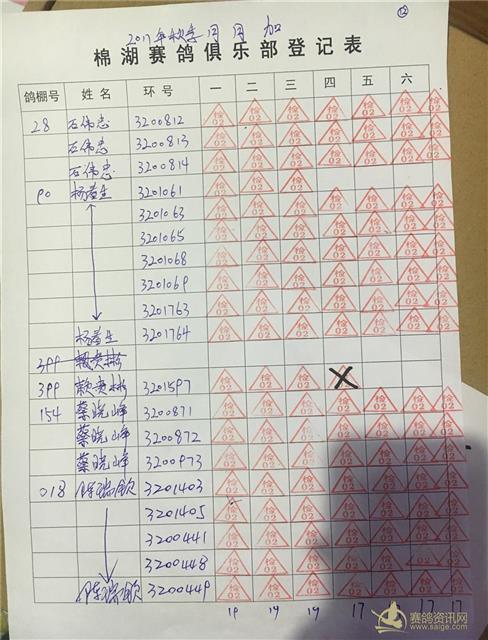 2017年秋季 月 月 加 ⑫
棉湖赛鸽俱乐部登记表
鸽棚号 姓名 环号 一 二 三 四 五 六
28 石伟忠 3200812 检02 检02 检02 检02 检02 检02 检02
石伟忠 3200813 检02 检02 检02 检02 检02 检02 检02
石伟忠 3200814 检02 检02 检02 检02 检02 检02 检02
90 生 3201061 检02 检02 检02
3201063 检02 检02 检02 检02 检02 检02 检02
3201065 检02 检02 检02 检02 检02 检02 检02
3201068 检02 检02 检02 检02 检02 检02 检02
3201069 检02 检02 检02 检02 检02 检02 检02
3201763 检02 检02 检02 检02 检02 检02 检02
生 3201764 检02 检02 检02 检02 检02 检02 检02
399
399 3201597 检02 检02 检02 X
154 蔡晓峰 3200871 检02 检02 检02 检02 检02 检02 检02
蔡晓峰 3200872 检02 检02 检02 检02 检02 检02 检02
蔡晓峰 3200973 检02 检02 检02 检02 检02 检02 检02
018 陈瑞 3201403 检02 检02 检02 检02 检02 检02 检02
3201405 检02 检02 检02 检02 检02 检02 检02
3200441 检02 检02 检02 检02 检02 检02 检02
3200448 检02 检02 检02 检02 检02 检02 检02
陈瑞 3200449 检02 检02 检02 检02 检02 检02 检02
19 19 19 17 17 17 17
赛鸽资讯网
www.saige.com